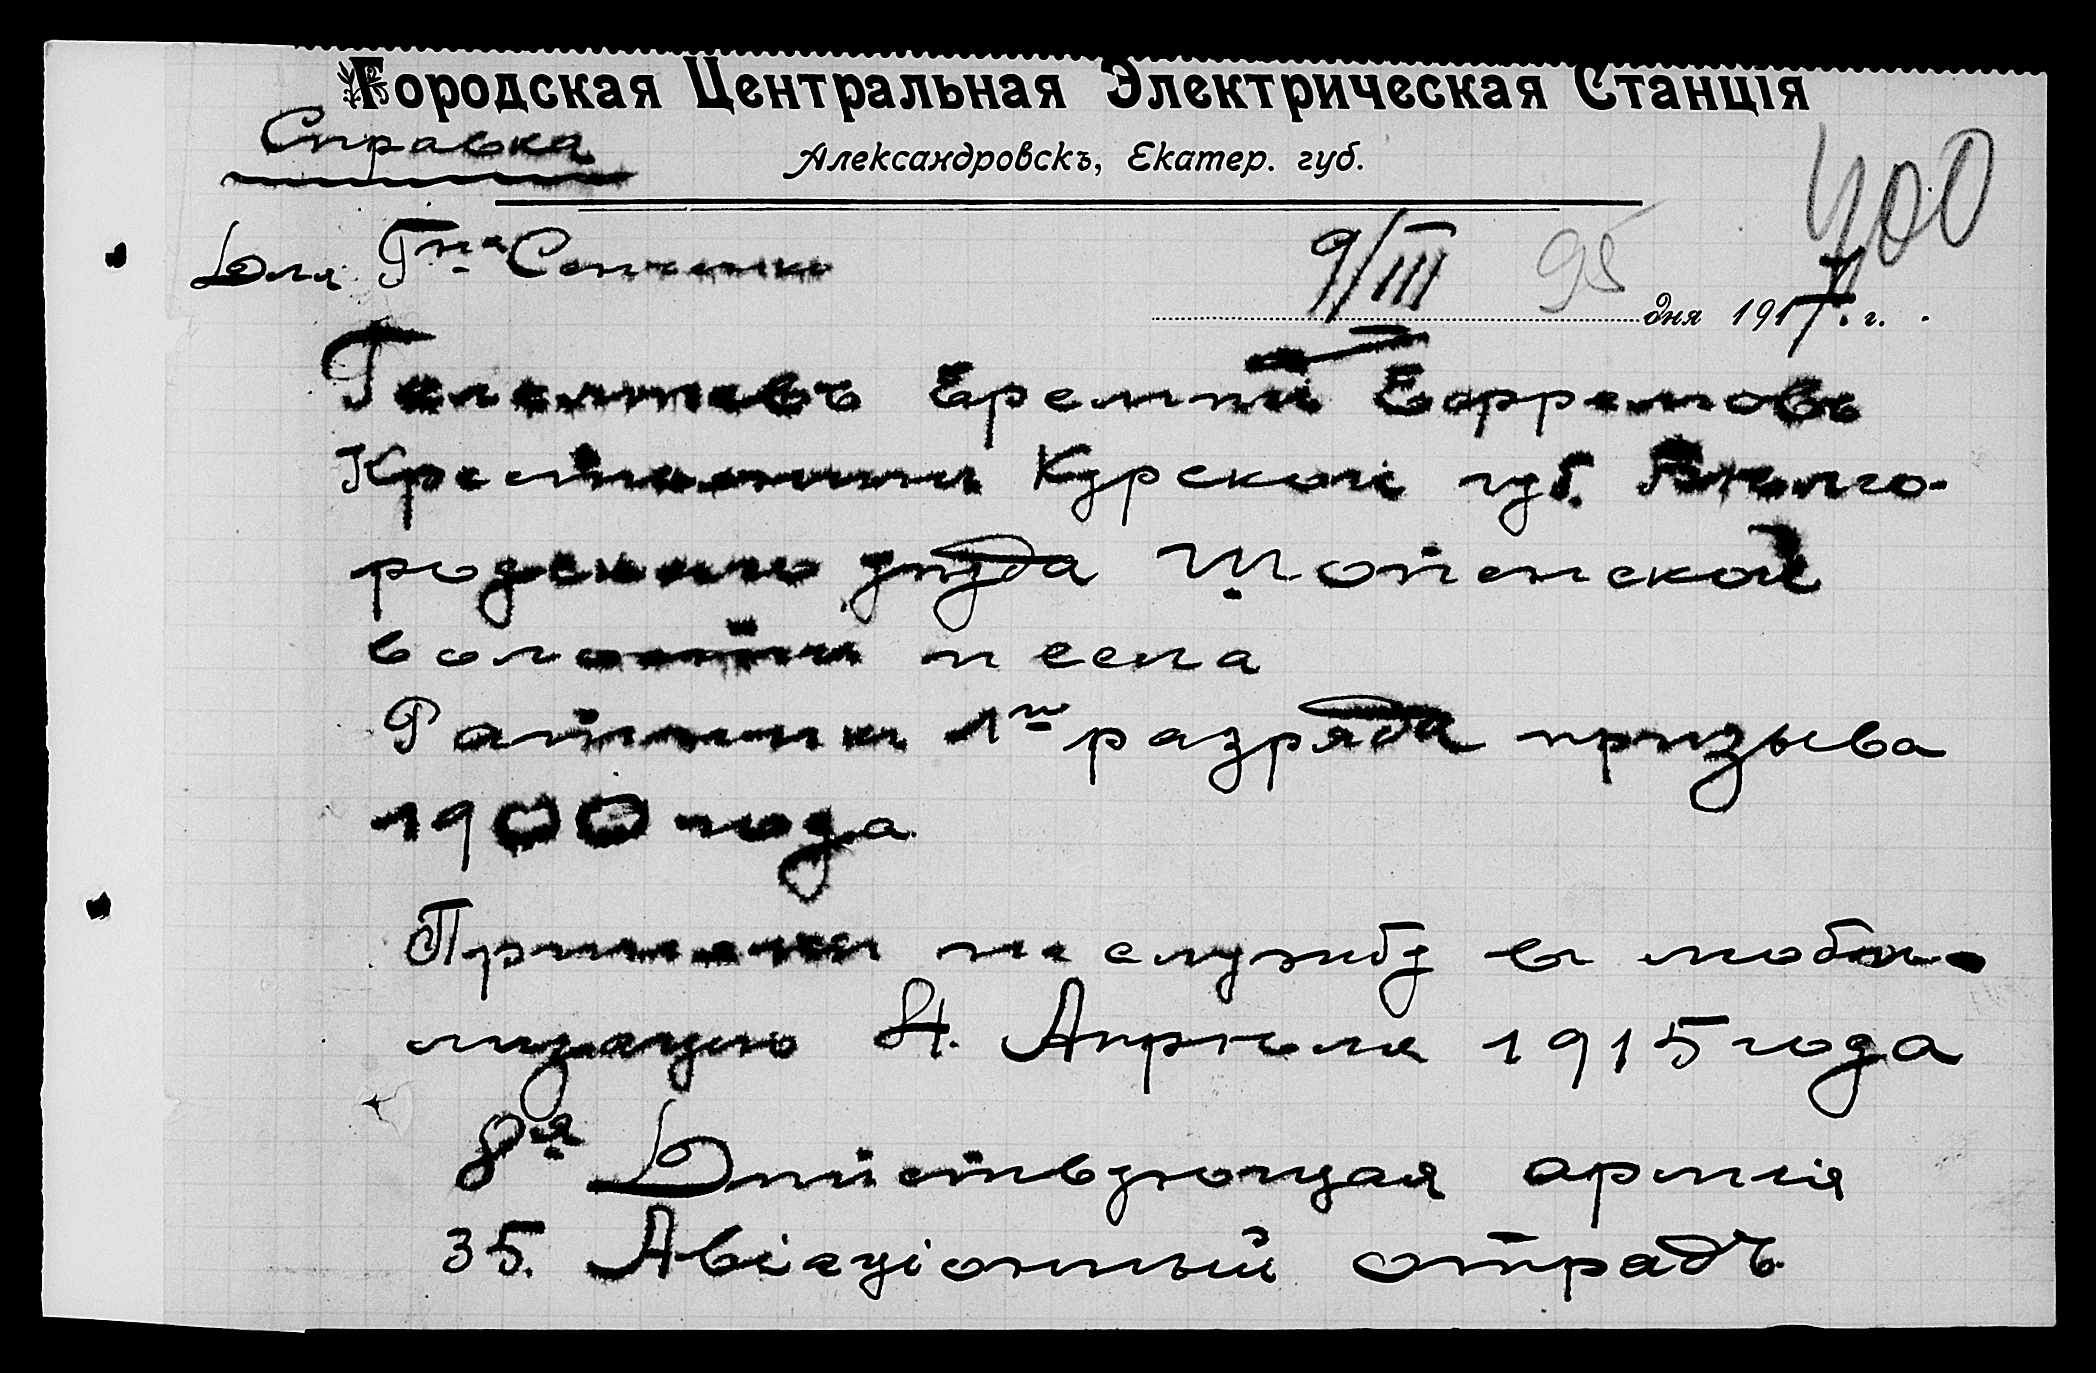 Городская Центральная Электрическая Станція
Справка
Александровскъ, Екатер. губ.
400
Для Гна Сенченко
9/III 95 дня 1917 г.
Еремѣй Ефремовъ
Крестьянинъ Курской губ. Бѣлго-
родскаго уѣзда Шопенской
волости и села
Ратникъ 1го разряда призыва
1900 года
Призванъ на службу въ моби-
лизацію 4. Апрѣля 1915 года
8ая Дѣйствующая армія
35. Авіаціонный отрядъ